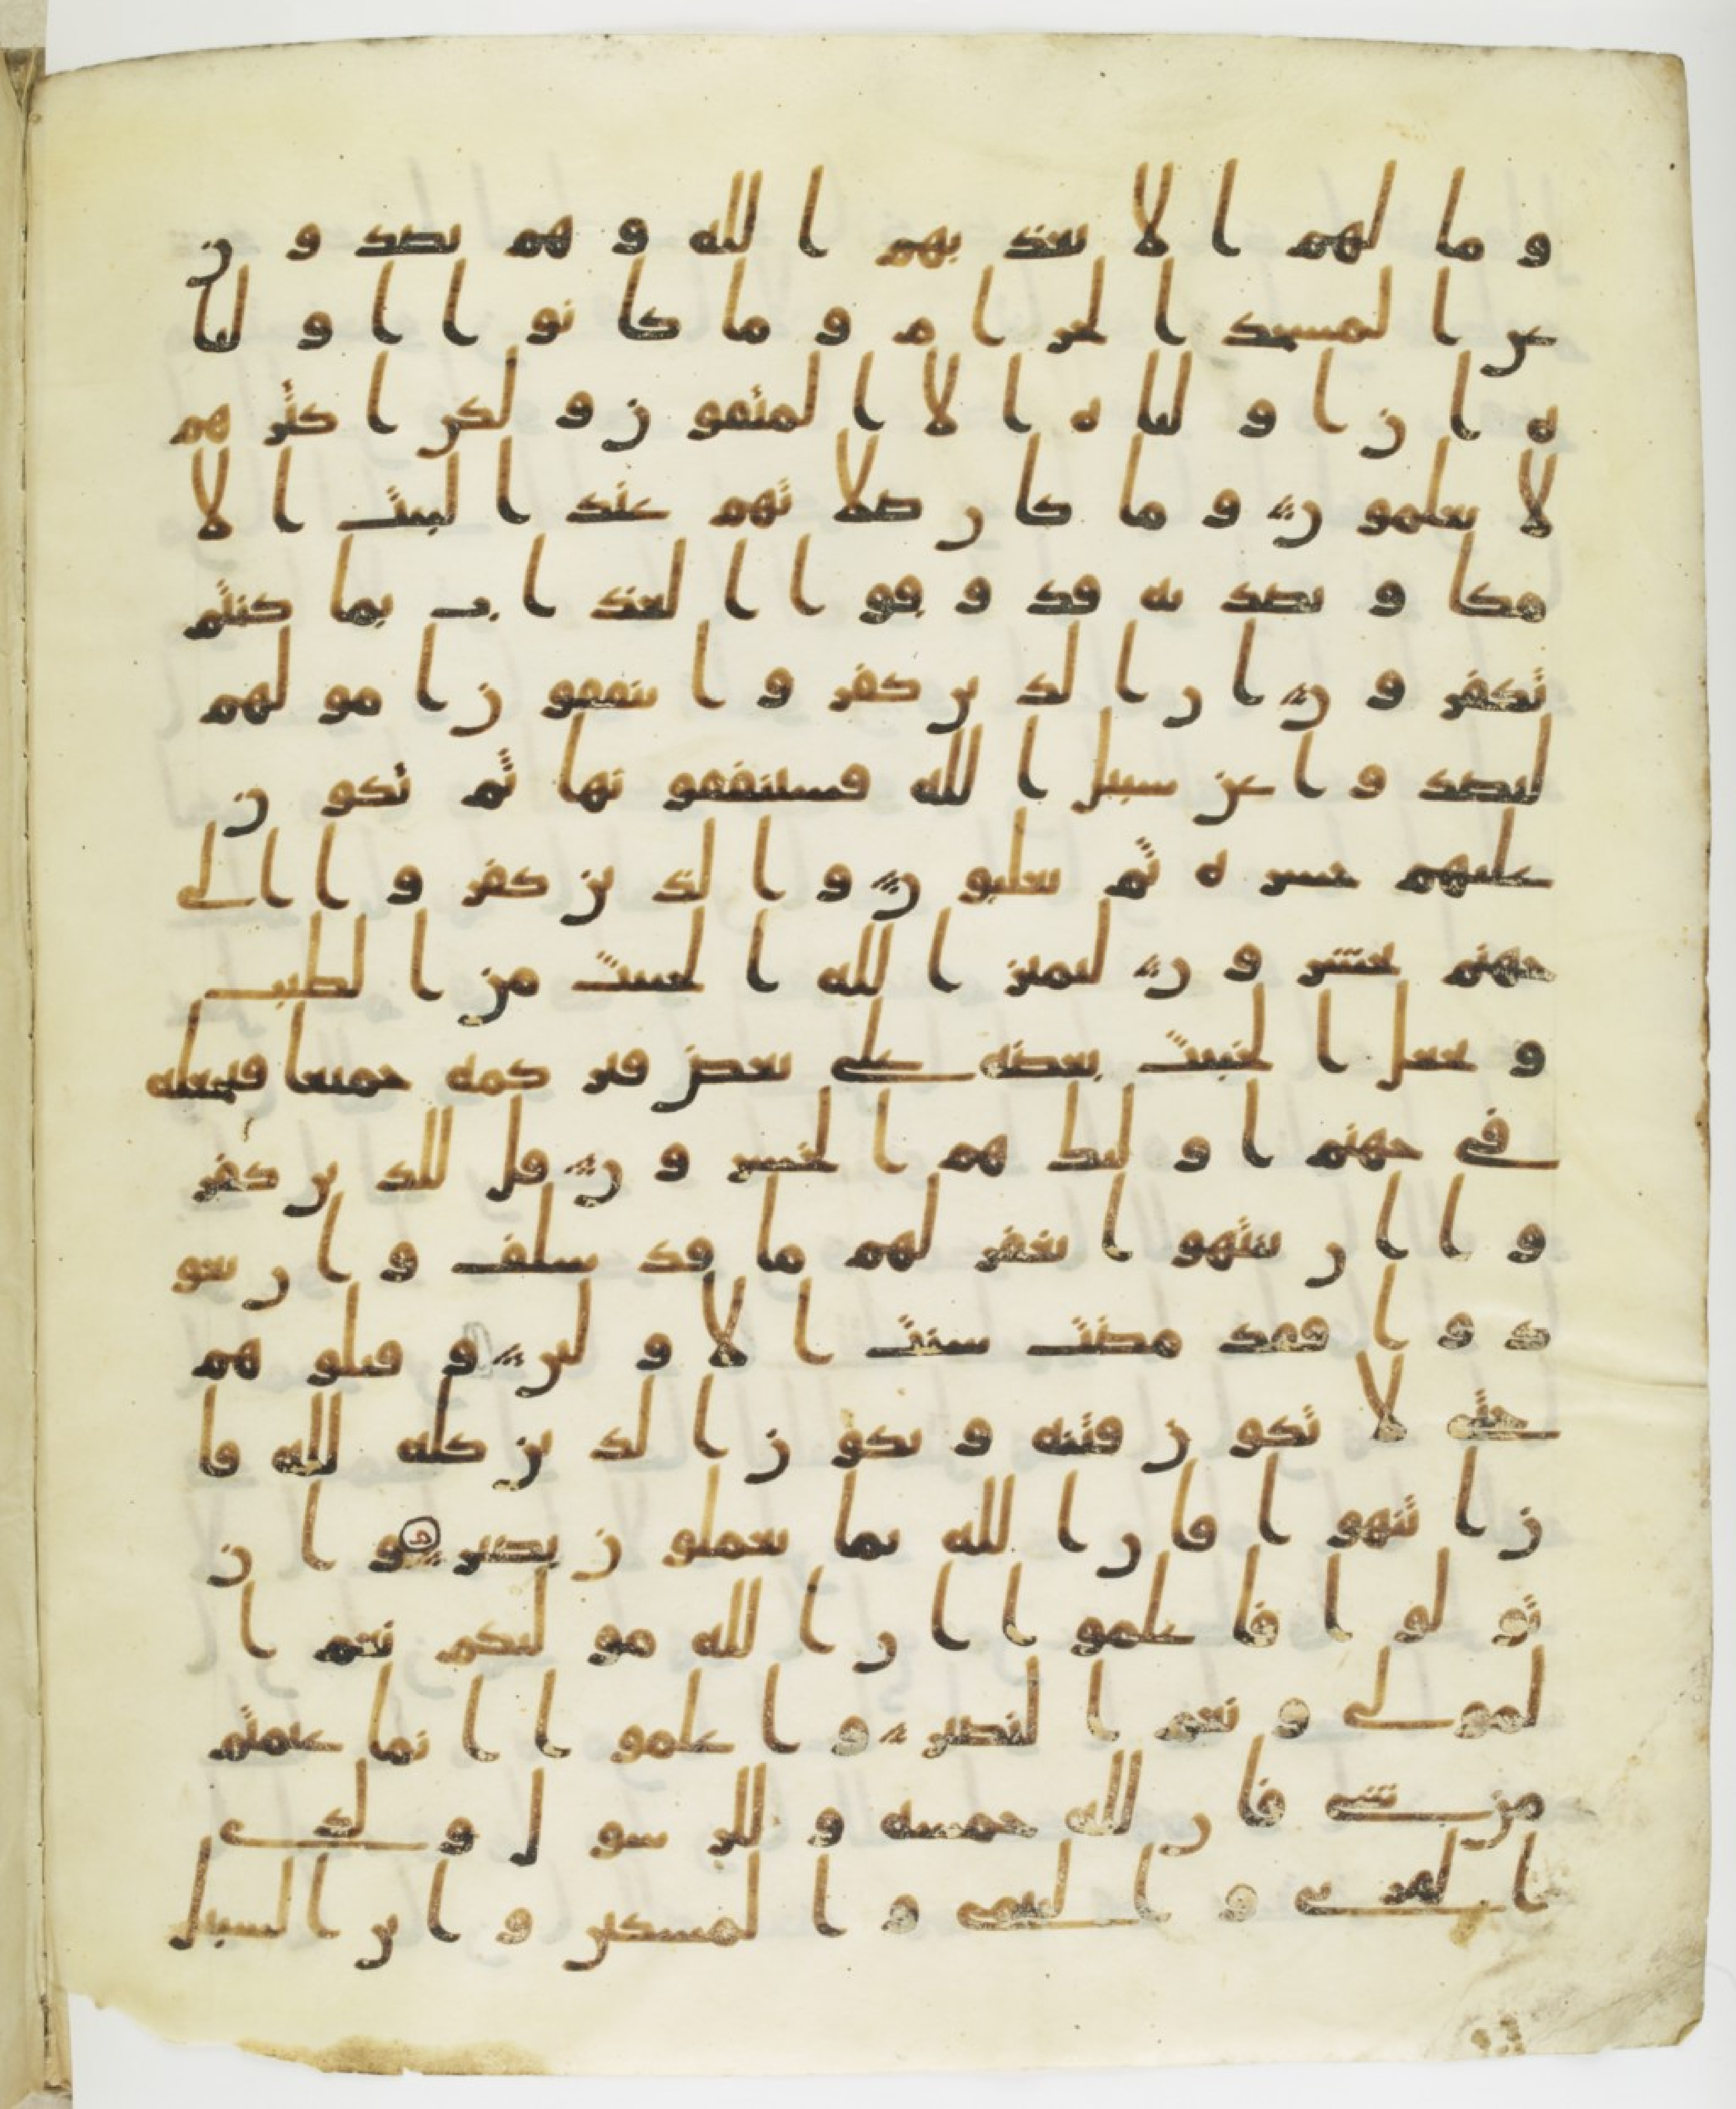 و ما لهم ا لا يعذ بهم ا لله و هم يصد و ن
عن ا لمسجد ا لحر ا م و ما كا نو ا ا و ليا
ه ا ن ا و ليا ه ا لا ا لمتقو ن و لكن ا كثر هم
لا يعلمو ن و ما كا ن صلا تهم عند ا لبيت ا لا
مكا و تصد يه فذ و قو ا ا لعذ ا ب بما كنتم
تكفر و ن ا ن ا لذ ين كفر و ا ينفقو ن ا مو لهم
ليصد و ا عن سبيل ا لله فسينفقو نها ثم تكو ن
عليهم حسر ه ثم يغلبو ن و ا لذ ين كفر و ا ا لى
جهنم يحشر و ن ليميز ا لله ا لخبيث من ا لطيب
و يجعل ا لخبيث بعضه على بعض فير كمه جميعا فيجعله
في جهنم ا و ليك هم ا لخسر و ن قل للذ ين كفر
و ا ا ن ينتهو ا يغفر لهم ما قد سلف و ا ن يعو
د و ا فقد مضت سنت ا لا و لين و قتلو هم
حتى لا تكو ن فتنه و يكو ن ا لد ين كله لله فا
ن ا نتهو ا فا ن ا لله بما يعملو ن بصير و ا ن
تو لو ا فا علمو ا ا ن ا لله مو ليكم نعم ا
لمو لى و نعم ا لنصير و ا علمو ا ا نما غنمتم
من شى فا ن لله خمسه و للر سو ل و لذ ى
ا لقر بى و ا ليتمى و ا لمسكين و ا بن ا لسبيل